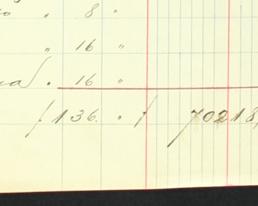 " 8 "
" 16 "
" 16 "
/ 136. " / 70218,